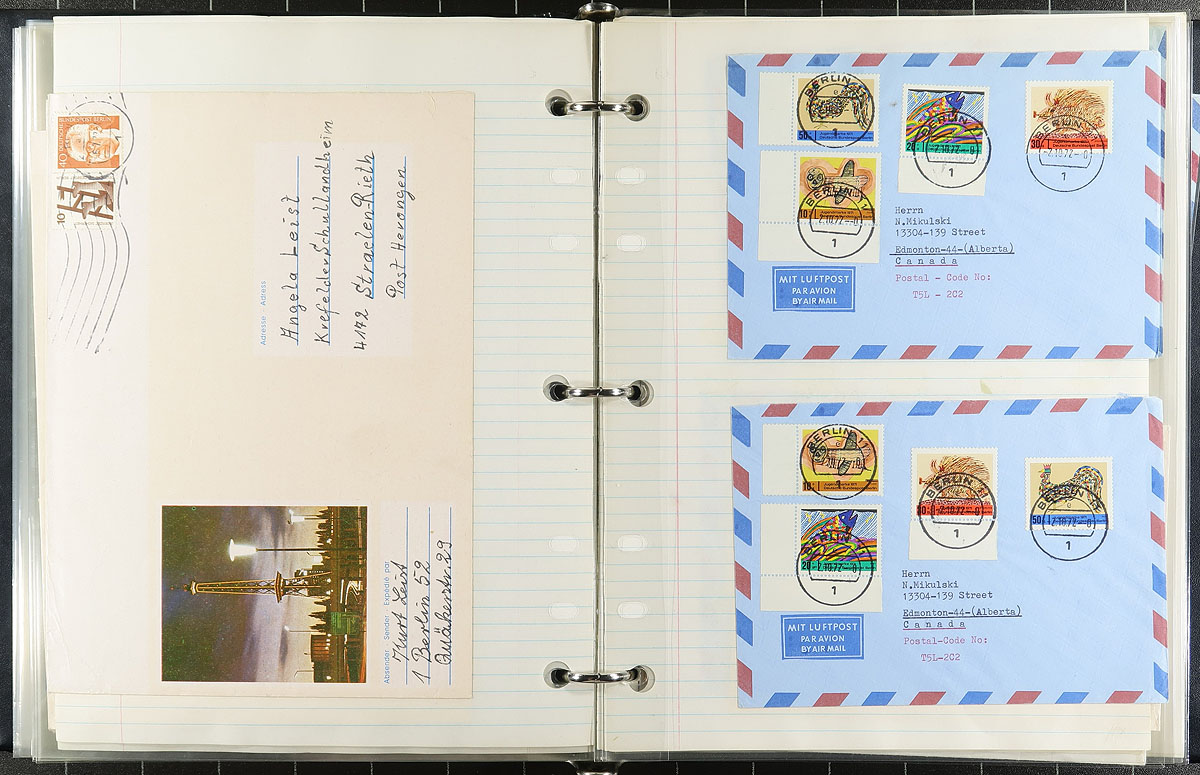 DEUTSCHE BUNDESPOST BERLIN
40
10
Adresse Adress
Angela Leist
Krefelder Schullandheim
4172 Straelen-Rieth
Post Herongen
Absender Sender Expédié par
Kurt Leist
1 Berlin 52
Quäkerstr. 29
BERLIN 11
1
50
Jugendmarke 1971
Deutsche Bundespost Berlin
BERLIN 11
-2.10.72
1
10
BERLIN
20
-2.10.72-
1
BERLIN
30
Jugendmarke 1971
Deutsche Bundespost Berlin
-2.10.72-
1
MIT LUFTPOST
PAR AVION
BY AIR MAIL
Herrn
N.Mikulski
13304-139 Street
Edmonton-44-(Alberta)
Canada
Postal - Code No:
T5L - 2C2
BERLIN 11
10
Jugendmarke 1971
Deutsche Bundespost Berlin
1
BERLIN
20
-2.10.72-
1
BERLIN 11
-2.10.72-
1
BERLIN
50
-2.10.72-
1
MIT LUFTPOST
PAR AVION
BY AIR MAIL
Herrn
N.Mikulski
13304-139 Street
Edmonton-44-(Alberta)
Canada
Postal-Code No:
T5L-2C2